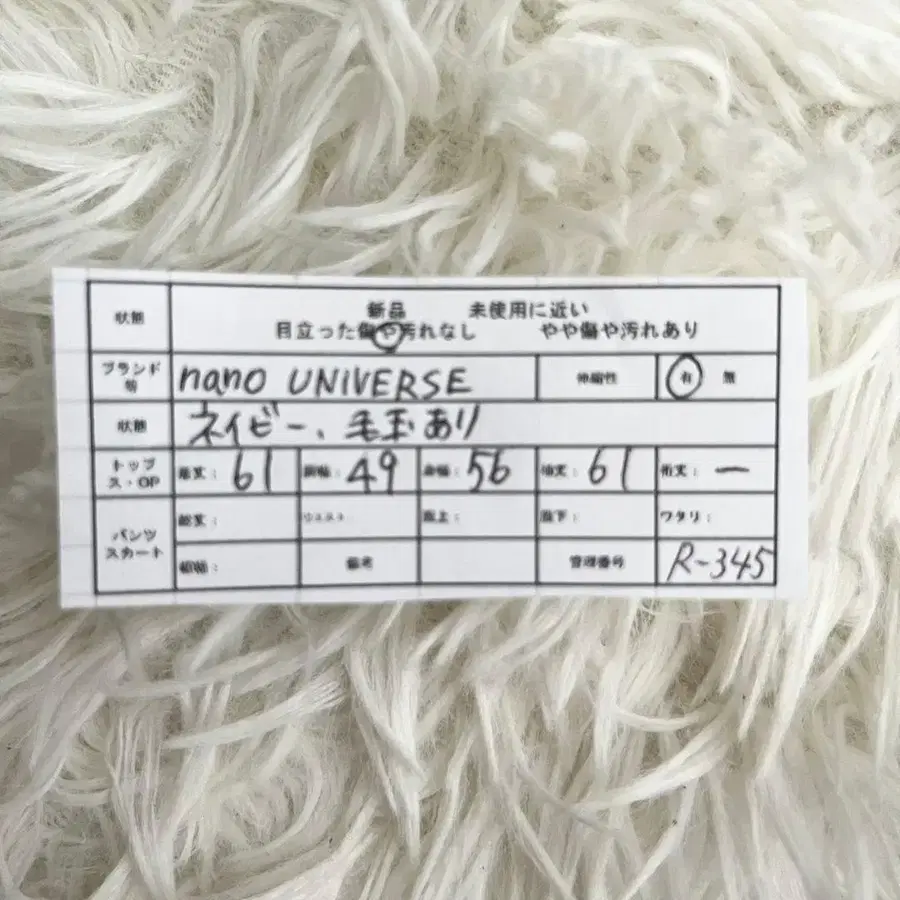 状態 新品 未使用に近い
目立った傷や汚れなし やや傷や汚れあり
ブランド名 nano UNIVERSE 伸縮性 有 無
状態 ネイビー、毛玉あり
トップス・OP 着丈: 61 肩幅: 49 身幅: 56 袖丈: 61 裄丈: ー
パンツスカート 総丈: ウエスト: 股上: 股下: ワタリ:
裾幅: 備考 管理番号 R-345